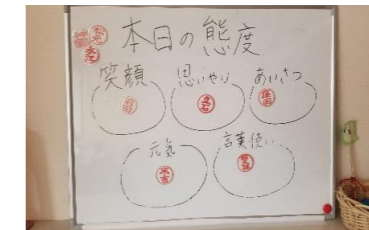 本日の態度
笑顔 思いやり あいさつ
元気 言葉使い
永吉